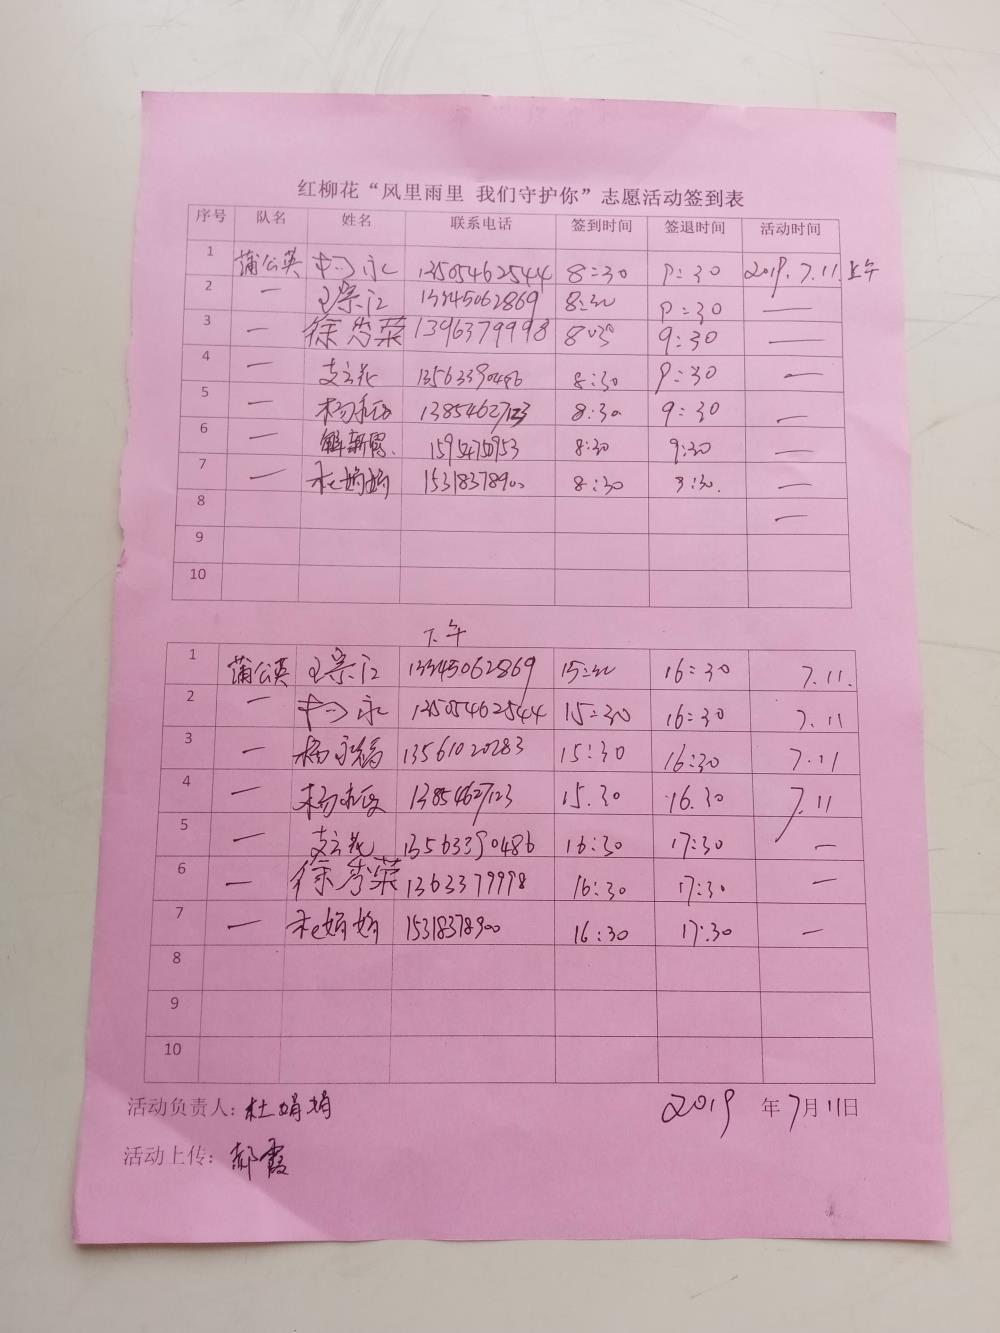 红柳花“风里雨里 我们守护你”志愿活动签到表
序号 队名 姓名 联系电话 签到时间 签退时间 活动时间
1 蒲公英 13505462544 8:30 9:30 2019.7.11.上午
2 一 王宗江 13345062869 8:30 9:30 —
3 一 徐秀荣 13963379998 9:30 —
4 一 支立花 13563390486 8:30 9:30 —
5 一 13854627123 8:30 9:30 —
6 一 8:30 9:30 —
7 一 杜娟娟 15318378900 8:30 9:30. —
8 —
9
10
下午
1 蒲公英 王宗江 13345062869 15:30 16:30 7.11.
2 一 13505462544 15:30 16:30 7.11
3 一 13561020283 15:30 16:30 7.11
4 一 13854627123 15.30 16.30 7.11
5 一 支立花 13563390486 16:30 17:30 —
6 一 徐秀荣 13633779998 16:30 17:30 —
7 一 杜娟娟 15318378900 16:30 17:30 —
8
9
10
活动负责人:杜娟娟 2019 年 7月 11日
活动上传:郝霞